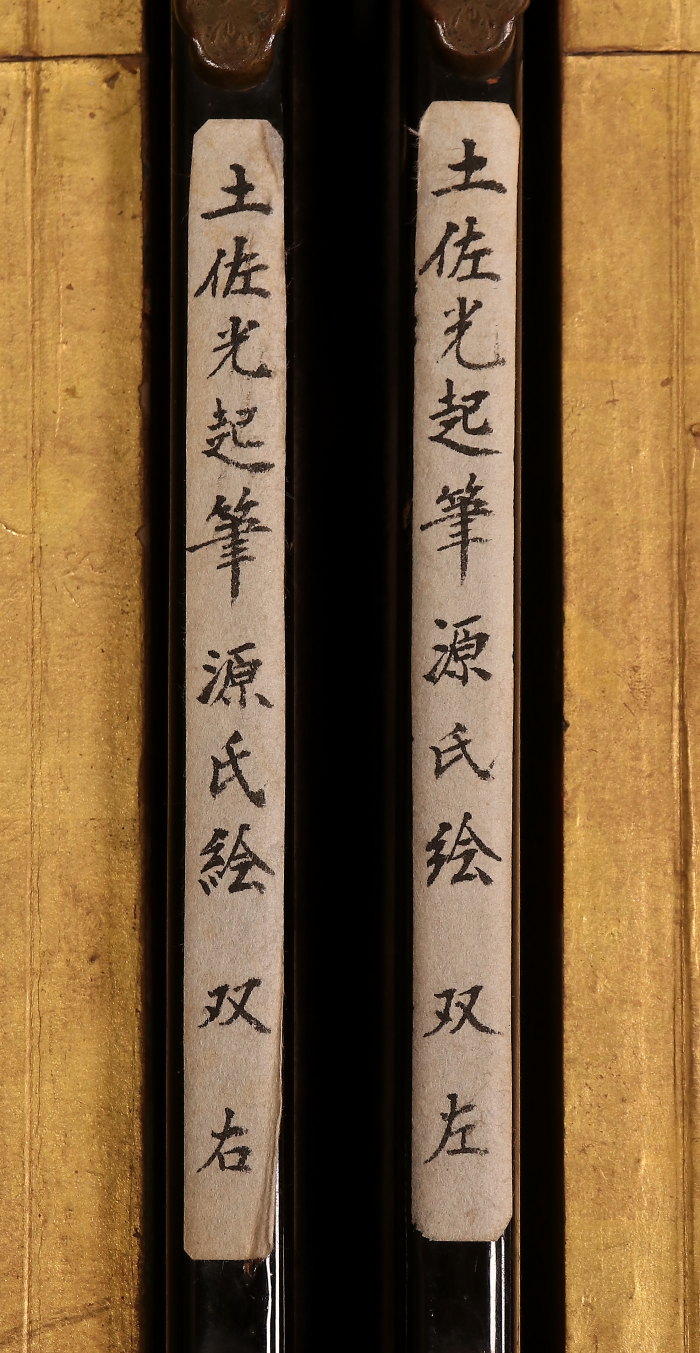 土佐光起筆 源氏絵 双 左
土佐光起筆 源氏絵 双 右